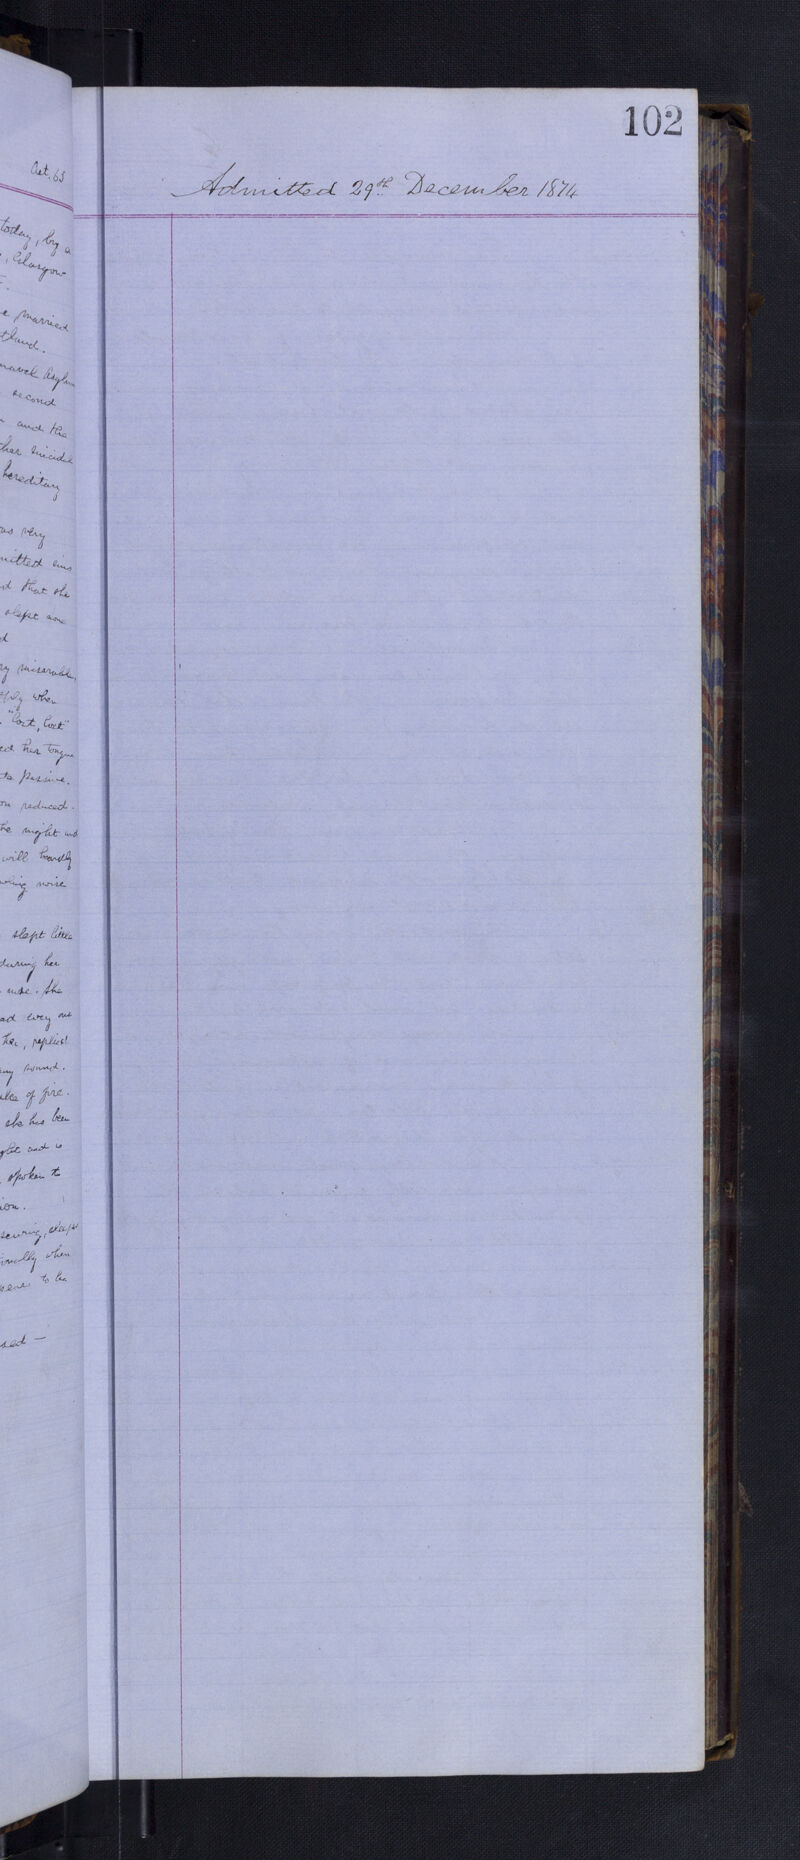 Aet. 65
today, by a
, Glasgow
e married
tland.
navel Asylum
second
and the
ther suicidal
hereditary
as very
mitted eius
d that she
slept
d
ry miserable,
ply when
"lost, lost"
ed her tongue
te passive.
on reduced.
he night and
will hardly
ing noise
slept little
during her
nurse. She
ad every one
her, replied
any sound.
lake of fire.
she has been
ght and is
spoken to
ion.
ionally when
seems to be
sed —
102
Admitted 29th December 1874